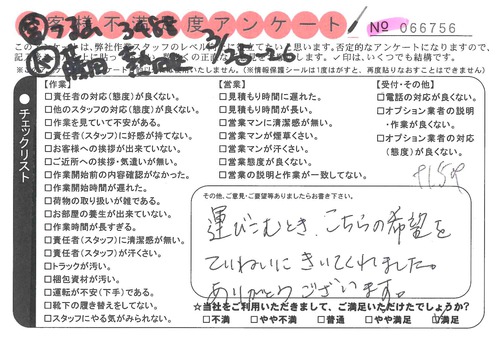 客様不満足度アンケート
№ 066756
このアンケートは、弊社作業スタッフのレベル
否定的なアンケートになりますので、
✓印は、いくつでも結構です。
(※情報保護シールは1度はがすと、再度貼りなおすことはできません)
チェックリスト
【作業】
□責任者の対応(態度)が良くない。
□他のスタッフの対応(態度)が良くない。
□作業を見ていて不安がある。
□責任者(スタッフ)に好感が持てない。
□お客様への挨拶が出来ていない。
□ご近所への挨拶・気遣いが無い。
□作業開始前の内容確認がなかった。
□作業開始時間が遅れた。
□荷物の取り扱いが雑である。
□お部屋の養生が出来ていない。
□作業時間が長すぎる。
□責任者(スタッフ)に清潔感が無い。
□責任者(スタッフ)が汗くさい。
□トラックが汚い。
□梱包資材が汚い。
□運転が不安(下手)である。
□靴下の履き替えをしてない。
□スタッフにやる気がみられない。
【営業】
□見積もり時間に遅れた。
□見積もり時間が長い。
□営業マンに清潔感が無い。
□営業マンが煙草くさい。
□営業マンが汗くさい。
□営業態度が良くない。
□営業の説明と作業が一致してない。
【受付・その他】
□電話の対応が良くない。
□オプション業者の説明
・作業が良くない。
□オプション業者の対応
(態度)が良くない。
その他、ご意見・ご要望等ありましたらお書き下さい。
運びこむとき、こちらの希望を
ていねいにきいてくれました。
ありがとうございます。
☆当社をご利用いただきまして、ご満足いただけたでしょうか?
□不満 □やや不満 □普通 □やや満足 ☑満足